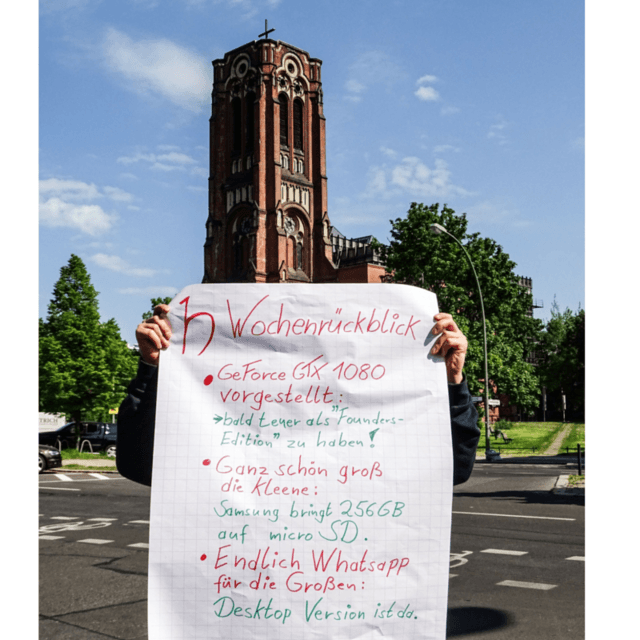 h Wochenrückblick
• GeForce GTX 1080
vorgestellt:
→bald teuer als "Founders-
Edition" zu haben!
• Ganz schön groß
die Kleene:
Samsung bringt 256GB
auf micro SD.
• Endlich Whatsapp
für die Großen:
Desktop Version ist da.